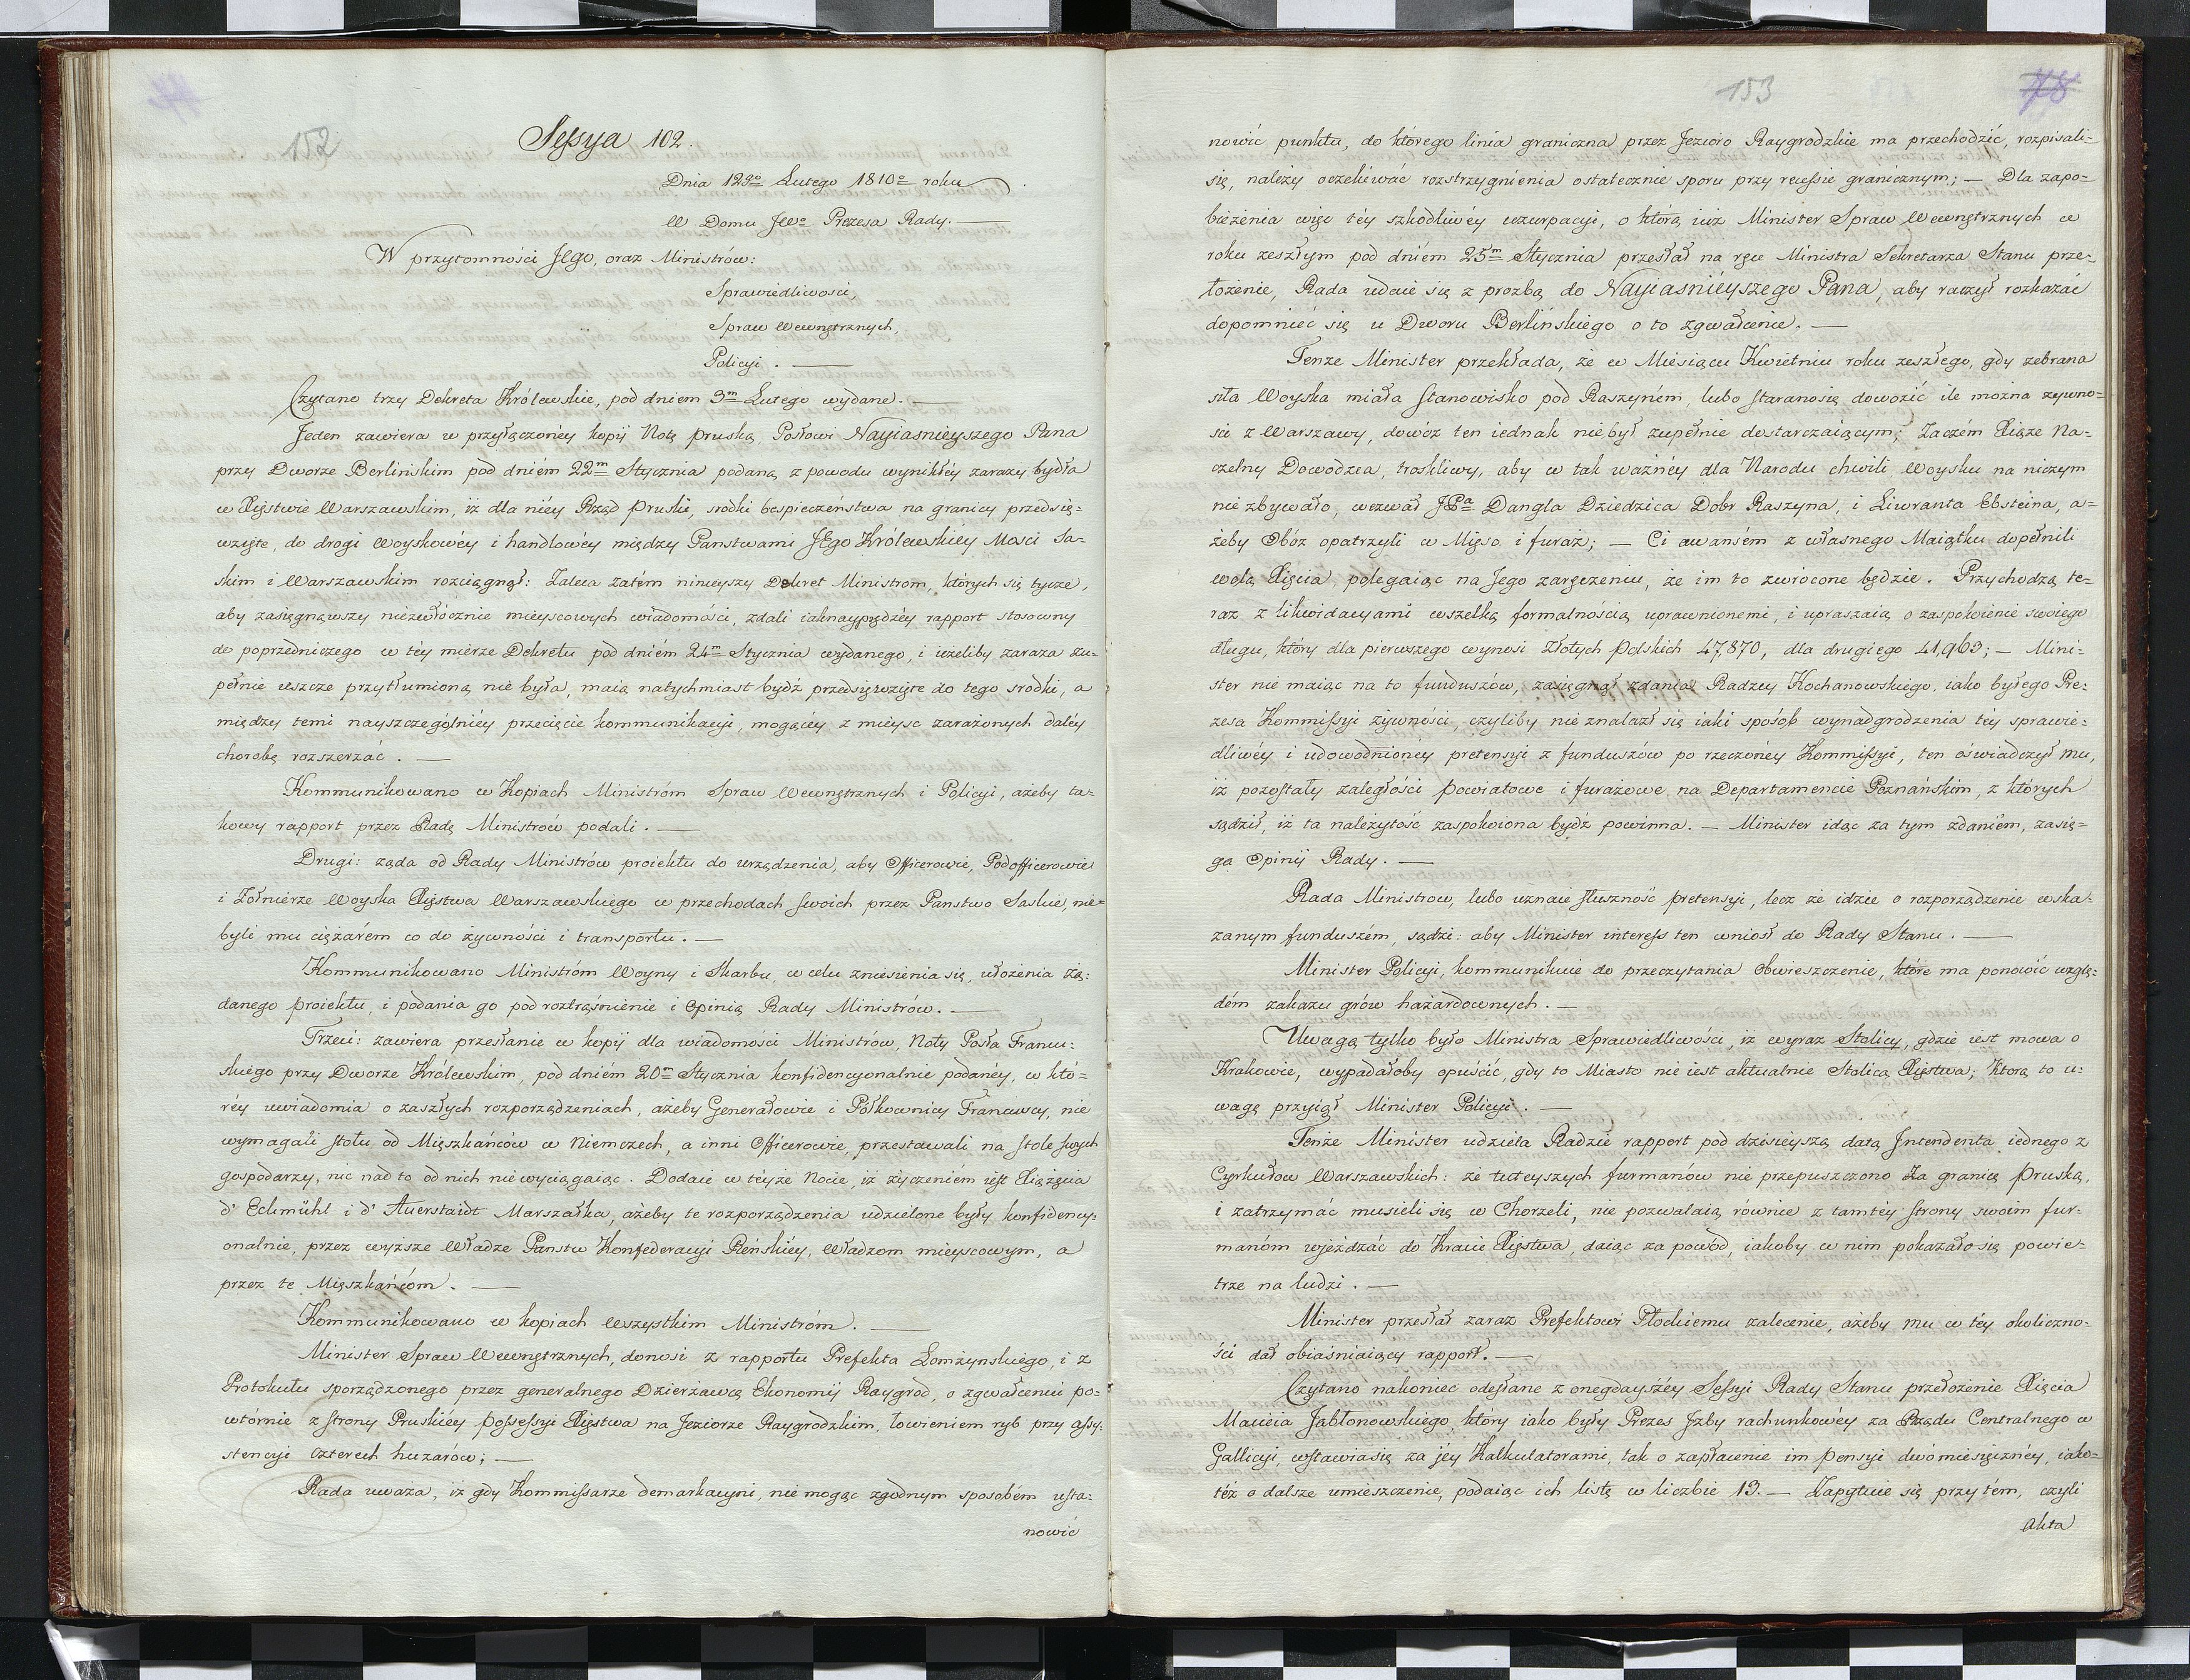 152
Sessya 102.
Dnia 12go Lutego 1810o roku
W Domu JWo Prezesa Rady. —
W przytomności Jego, oraz Ministrów:
Sprawiedliwości,
Spraw Wewnętrznych,
Policyi. —
Czytano trzy Dekreta Królewskie, pod dniem 3m Lutego wydane. —
Jeden zawiera w przyłączonéy kopij Notę pruską, Posłowi Nayiasnieyszego Pana
przy Dworze Berlińskim pod dniém 22m Stycznia podaną, z powodu wynikłéy zarazy bydła
w Xięstwie Warszawskim, iż dla niéy Rząd pruski, srodki bespieczeństwa na granicy przedsię=
wzięte, do drogi woyskowéy i handlowéy między Panstwami JEgo Królewskiéy Mosci Sa=
skim i Warszawskim rozciągnął: Zaleca zatém ninieyszy Dekret Ministrom, których się tycze,
aby zasięgnąwszy niezwłócznie mieyscowych wiadomości, zdali iaknayprędzéy rapport stosowny
do poprzedniczego w téy mierze Dekretu pod dniém 24m Stycznia wydanego, i ieżeliby zaraza zu=
pełnie ieszcze przytłumioną nie była, maią natychmiast bydź przedsięwzięte do tego srodki, a
między temi nayszczególniéy przecięcie kommunikacyi, mogącéy z mieysc zarażonych daléy
chorobę rozszerzać. —
Kommunikowano w Kopiach Ministróm Spraw Wewnętrznych i Policyi, ażeby ta=
kowy rapport przez Radę Ministrów podali. —
Drugi: żąda od Rady Ministrów proiektu do urządzenia, aby Officerowie, Podofficerowie
i Żołnierze Woyska Xięstwa Warszawskiego w przechodach swoich przez Panstwo Saskie, nie=
byli mu ciężarém co do żywności i transportu. —
Kommunikowano Ministróm Woyny i Skarbu, w celu zniesienia się, ułożenia żą=
danego proiektu, i podania go pod roztrąśnienie i opinią Rady Ministrów. —
Trzeci: zawiera przesłanie w kopij dla wiadomosci Ministrów, Noty Posła Francu=
skiego przy Dworze Królewskim, pod dniém 20m Stycznia konfidencyonalnie podanéy, w któ=
réy uwiadomia o zaszłych rozporządzeniach, ażeby Generałowie i Półkownicy Francuscy, nie
wymagali stołu od Mięszkańców w Niemczech, a inni Officerowie, przestawali na stole swych
gospodarzy, nic nad to od nich nie wyciągaiąc. Dodaie w téyże Nocie, iż życzeniém iest Xiążęcia
d' Eckmühl i d' Auerstaidt Marszałka, ażeby te rozporządzenia udzielone były konfidency=
onalnie, przez wyższe Władze Panstw Konfederacyi Reńskiéy, Władzom mieyscowym, a
przez te Mięszkańcóm. —
Kommunikowano w kopiach Wszystkim Ministróm. —
Minister Spraw Wewnętrznych, donosi z rapportu Prefekta Łomżynskiego, i z
Protokułu sporządzonego przez generalnego Dzierżawcę Ekonomij Raygrod, o zgwałceniu po=
wtórnie z strony Pruskiéy possessyi Xięstwa na Jeziorze Raygrodzkim, łowieniem ryb przy assy=
stencyi czterech huzarów; —
Rada uważa, iż gdy Kommissarze demarkacyini, nie mogąc zgodnym sposobém usta=
nowić
153
78
nowić punktu, do którego linia graniczna przez Jezioro Raygrodzkie ma przechodzić, rozpisali=
się, należy oczekiwać rozstrzygnienia ostatecznie sporu przy recessie granicznym; — Dla zapo=
bieżenia więc téy szkodliwéy uzurpacyi, o którą iuż Minister Spraw Wewnętrznych w
roku zeszłym pod dniém 25m Stycznia przesłał na ręce Ministra Sekretarza Stanu prze=
łożenie, Rada udaie się z prozbą do Nayiasniéyszego Pana, aby raczył rozkazać
dopomnieć się u Dworu Berlińskiego o to zgwałcenie. —
Tenże Minister przekłada, że w Miesiącu Kwietniu roku zeszłego, gdy zebrana
siła Woyska miała stanowisko pod Raszyném, lubo staranosię dowozić ile można żywno=
sci z Warszawy, dowóz ten iednak niebył zupełnie dostarczaiącym; Zaczém Xiąże Na=
czelny Dowodzca, troskliwy, aby w tak ważnéy dla Narodu chwili, Woysku na niczym
nie zbywało, wezwał JPa Dangla Dziedzica Dobr Raszyna, i Liwranta Ebsteina, a=
żeby Obóz opatrzyli w Mięso i furaż; — Ci awansém z własnego Maiątku dopełnili
wolą Xięcia, polegaiąc na Jego zaręczeniu, że im to zwrócone będzie. Przychodzą te=
raz z likwidacyami wszelką formalnością uprawnionemi, i upraszaią o zaspokoienie swoiego
długu, który dla pierwszego wynosi Złotych Polskich 47,870, dla drugiego 41,963; — Mini=
ster nie maiąc na to funduszów, zasięgnął zdania Radzcy Kochanowskiego, iako byłego Pre=
zesa Kommissyi żywności, czyliby nie znalazł się iaki sposób wynadgrodzenia téy sprawie=
dliwéy i udowodnionéy pretensyi z funduszów po rzeczonéy Kommissyi, ten oświadczył mu,
iż pozostały zaległości powiatowe i furażowe na Departamencie Poznańskim, z których
sądził, iż ta należytość zaspokoiona bydź powinna. — Minister idąc za tym zdaniém, zasię=
ga Opinij Rady. —
Rada Ministrow, lubo uznaie słuszność pretensyi, lecz że idzie o rozporządzenie wska=
zanym funduszém, sądzi: aby Minister interess ten wniosł do Rady Stanu. —
Minister Policyi, kommunikuie do przeczytania Obwieszczenie, które ma ponowić wzglę=
dém zakazu grów hazardownych. —
Uwagą tylko było Ministra Sprawiedliwości, iż wyraz Stolicy, gdzie iest mowa o
Krakowie, wypadałoby opuścić, gdy to Miasto nie iest aktualnie Stolicą Xięstwa; Ktorą to u=
wagę przyiął Minister Policyi. —
Tenże Minister udziela Radzie rapport pod dzisieyszą datą Intendenta iednego z
Cyrkułow Warszawskich: że tuteyszych furmanów nie przepuszczono za granicę Pruską,
i zatrzymać musieli się w Chorzeli, nie pozwalaią równie z tamtéy strony swoim fur=
manóm wjeżdzać do Kraiu Xięstwa, daiąc za powód, iakoby w nim pokazało się powie=
trze na ludzi. —
Minister przesłał zaraz Prefektowi Płockiemu zalecenie, ażeby mu w téy okoliczno=
ści dał obiaśniaiący rapport. —
Czytano nakoniec odesłane z onegdayszéy Sessyi Rady Stanu przełożenie Xięcia
Macieia Jabłonowskiego, który iako były Prezes Jzby rachunkowéy za Rządu Centralnego w
Gallicyi, wstawiasię za jéy Kalkulatorami, tak o zapłacenie im pensyi dwómiesięcznéy, iako=
téż o dalsze umieszczenie, podaiąc ich listę w liczbie 13. — Zapytuie się przytém, czyli
akta